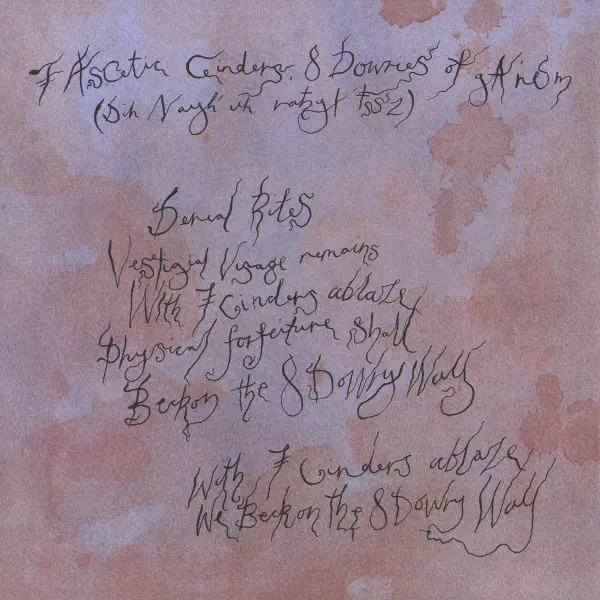 7 Ascetic Cinders, 8 Dowries of
(Dih
Denial Rites
Vestigial Visage remains
With 7 Cinders ablaze
Physical forfeiture shall
Beckon the 8 Dowry Wall
With 7 Cinders ablaze
We Beckon the 8 Dowry Wall